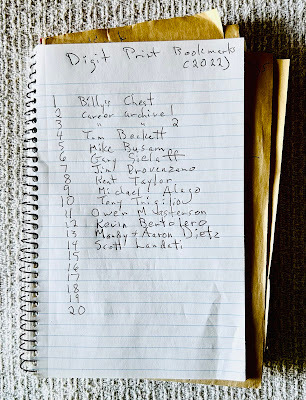 Digit Print Bookmarks
(2022)
1 Billy's Chest
2 Career Archive 1
3 " " 2
4 Tom Beckett
5 Mike
6 Gary
7 Jim Provenzano
8 Kent Taylor
9 Michael Alago
10 Tony
11 Owen
12 Kevin
13 Mandy + Aaron Dietz
14 Scott
15
16
17
18
19
20